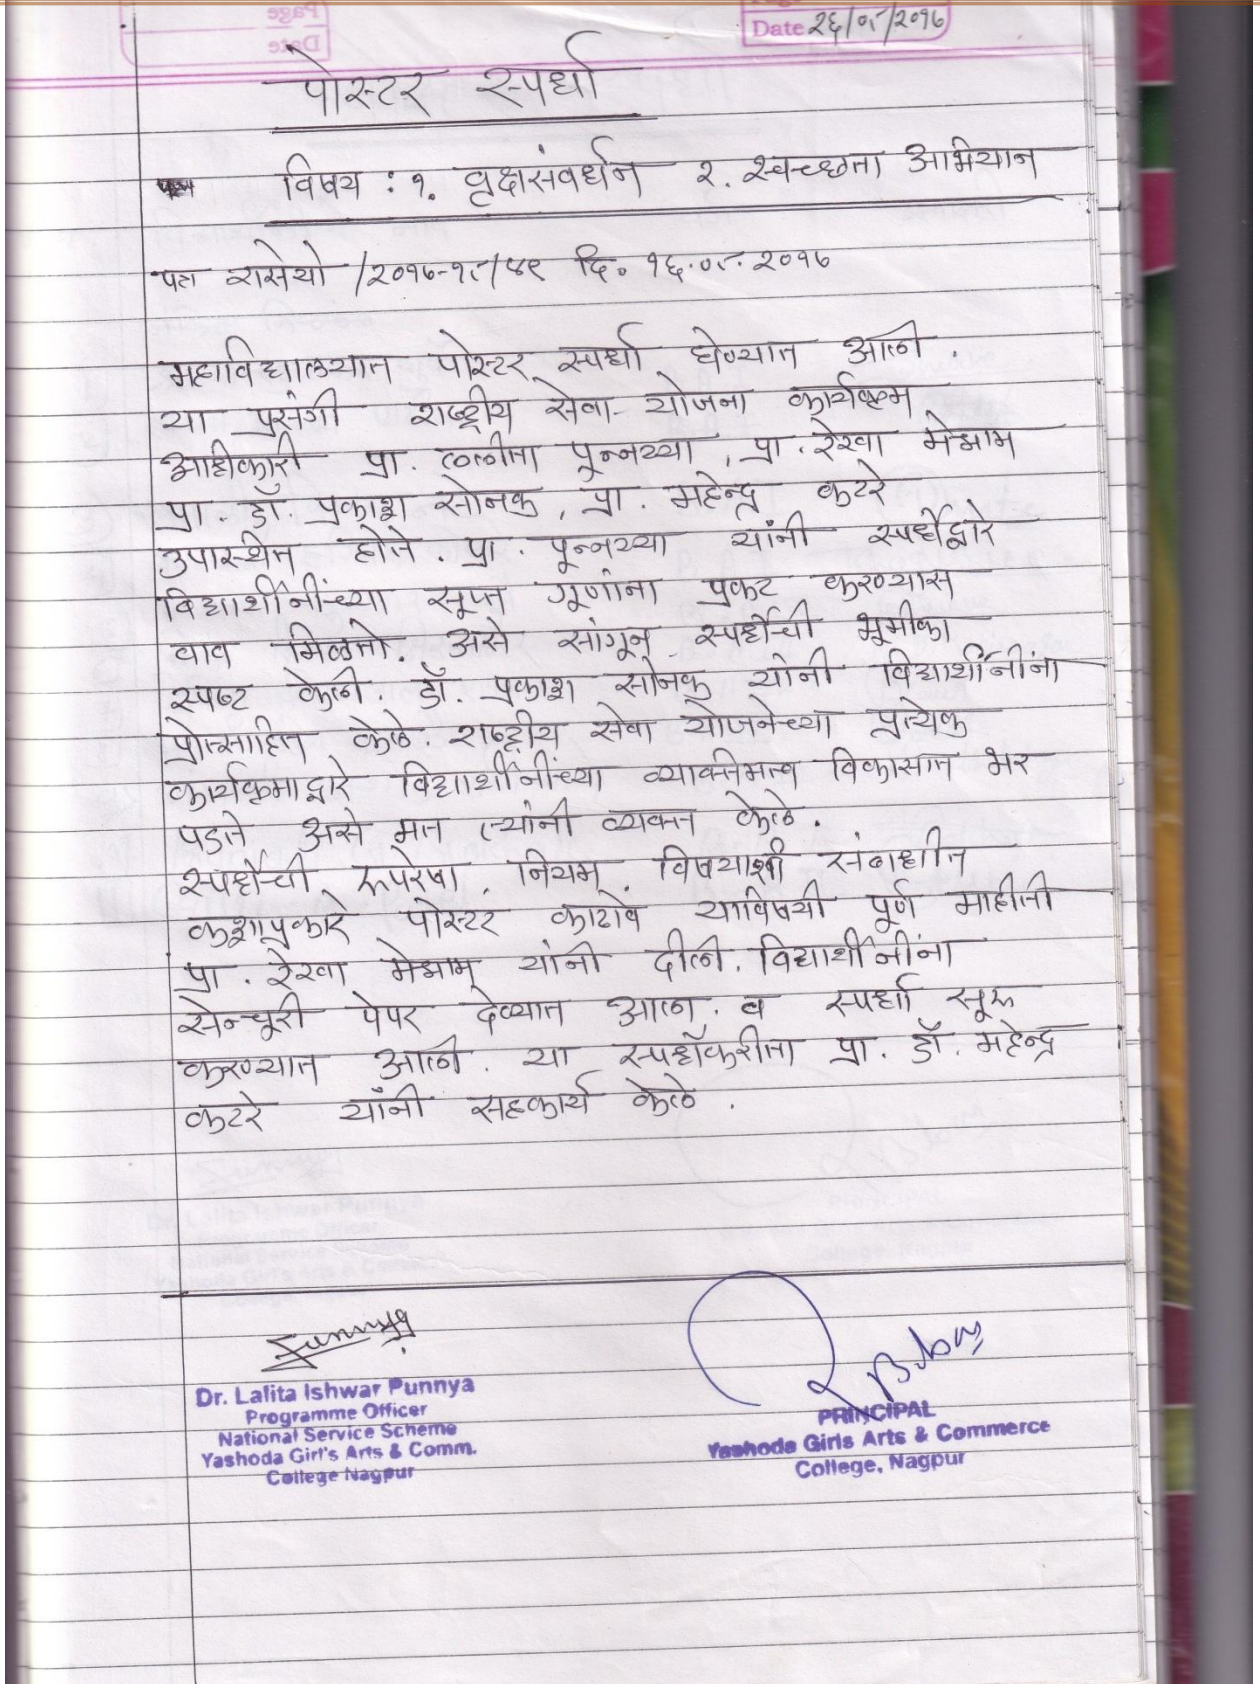 Date २६/०८/२०१७
पोस्टर स्पर्धा
विषय : १. वृक्षसंवर्धन २. स्वच्छता अभियान
पत्र रासेयो /२०१७-१८/४९ दि. १६.०८.२०१७
महाविद्यालयात पोस्टर स्पर्धा घेण्यात आली.
या प्रसंगी राष्ट्रीय सेवा योजना कार्यक्रम
अधीकारी प्रा. ललीता पून्नय्या, प्रा. रेखा मेश्राम
प्रा. डॉ. प्रकाश सोनक, प्रा. महेन्द्र कटरे
उपास्थित होते. प्रा. पून्नय्या यांनी स्पर्धेद्वारे
विद्यार्थीनींच्या सूप्त गूणांना प्रकट करण्यास
वाव मिळतो. असे सांगून स्पर्धेची भूमीका
स्पष्ट केली. डॉ. प्रकाश सोनक यांनी विद्यार्थीनींना
प्रोत्साहित केले. राष्ट्रीय सेवा योजनेच्या प्रत्येक
कार्यक्रमाद्वारे विद्यार्थीनींच्या व्याक्तिमत्व विकासात भर
पडते असे मत त्यांनी व्यक्त केले.
स्पर्धेची रूपरेषा, नियम, विषयाशी संबधीत
कशाप्रकारे पोस्टर काढावे याविषयी पूर्ण माहीती
प्रा. रेखा मेश्राम यांनी दीली. विद्यार्थीनींना
सेन्चूरी पेपर देण्यात आला. व स्पर्धा सूरू
करण्यात आली. या स्पर्धेकरीता प्रा. डॉ. महेन्द्र
कटरे यांनी सहकार्य केले.
Dr. Lalita Ishwar Punnya
Programme Officer
National Service Scheme
Yashoda Girl's Arts & Comm.
College Nagpur
PRINCIPAL
Yashoda Girls Arts & Commerce
College, Nagpur